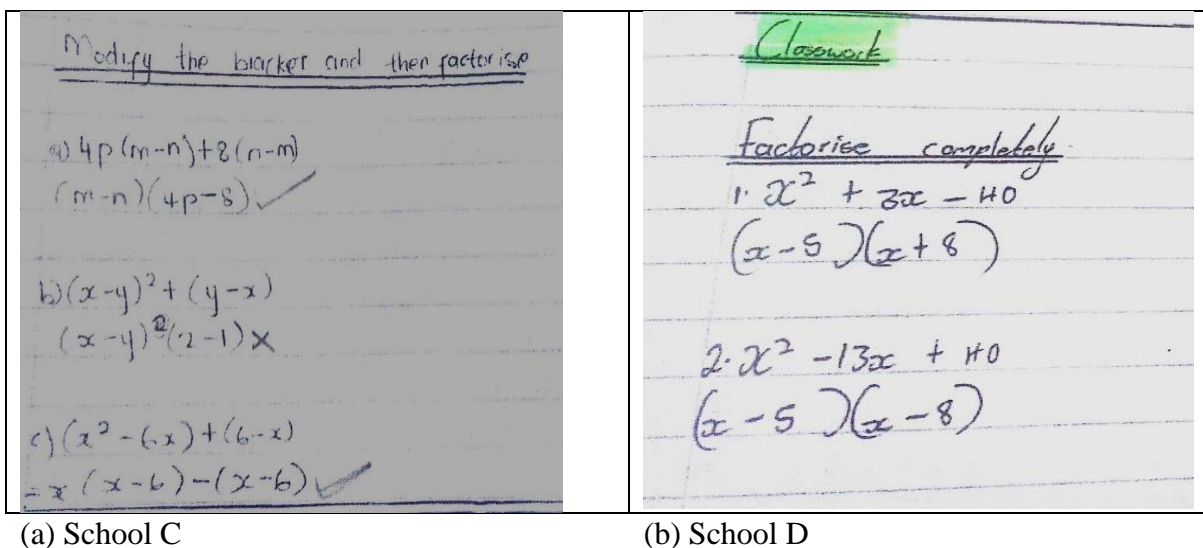 Modify the bracket and then factorise
a) 4p(m-n)+8(n-m)
(m-n)(4p-8) ✓
b) (x-y)²+(y-x)
(x-y)²(2-1) ✗
c) (x²-6x)+(6-x)
= x (x-6)-(x-6) ✓
Classwork
Factorise completely
1. x² + 3x - 40
(x-5)(x+8)
2. x² - 13x + 40
(x-5)(x-8)
(a) School C
(b) School D